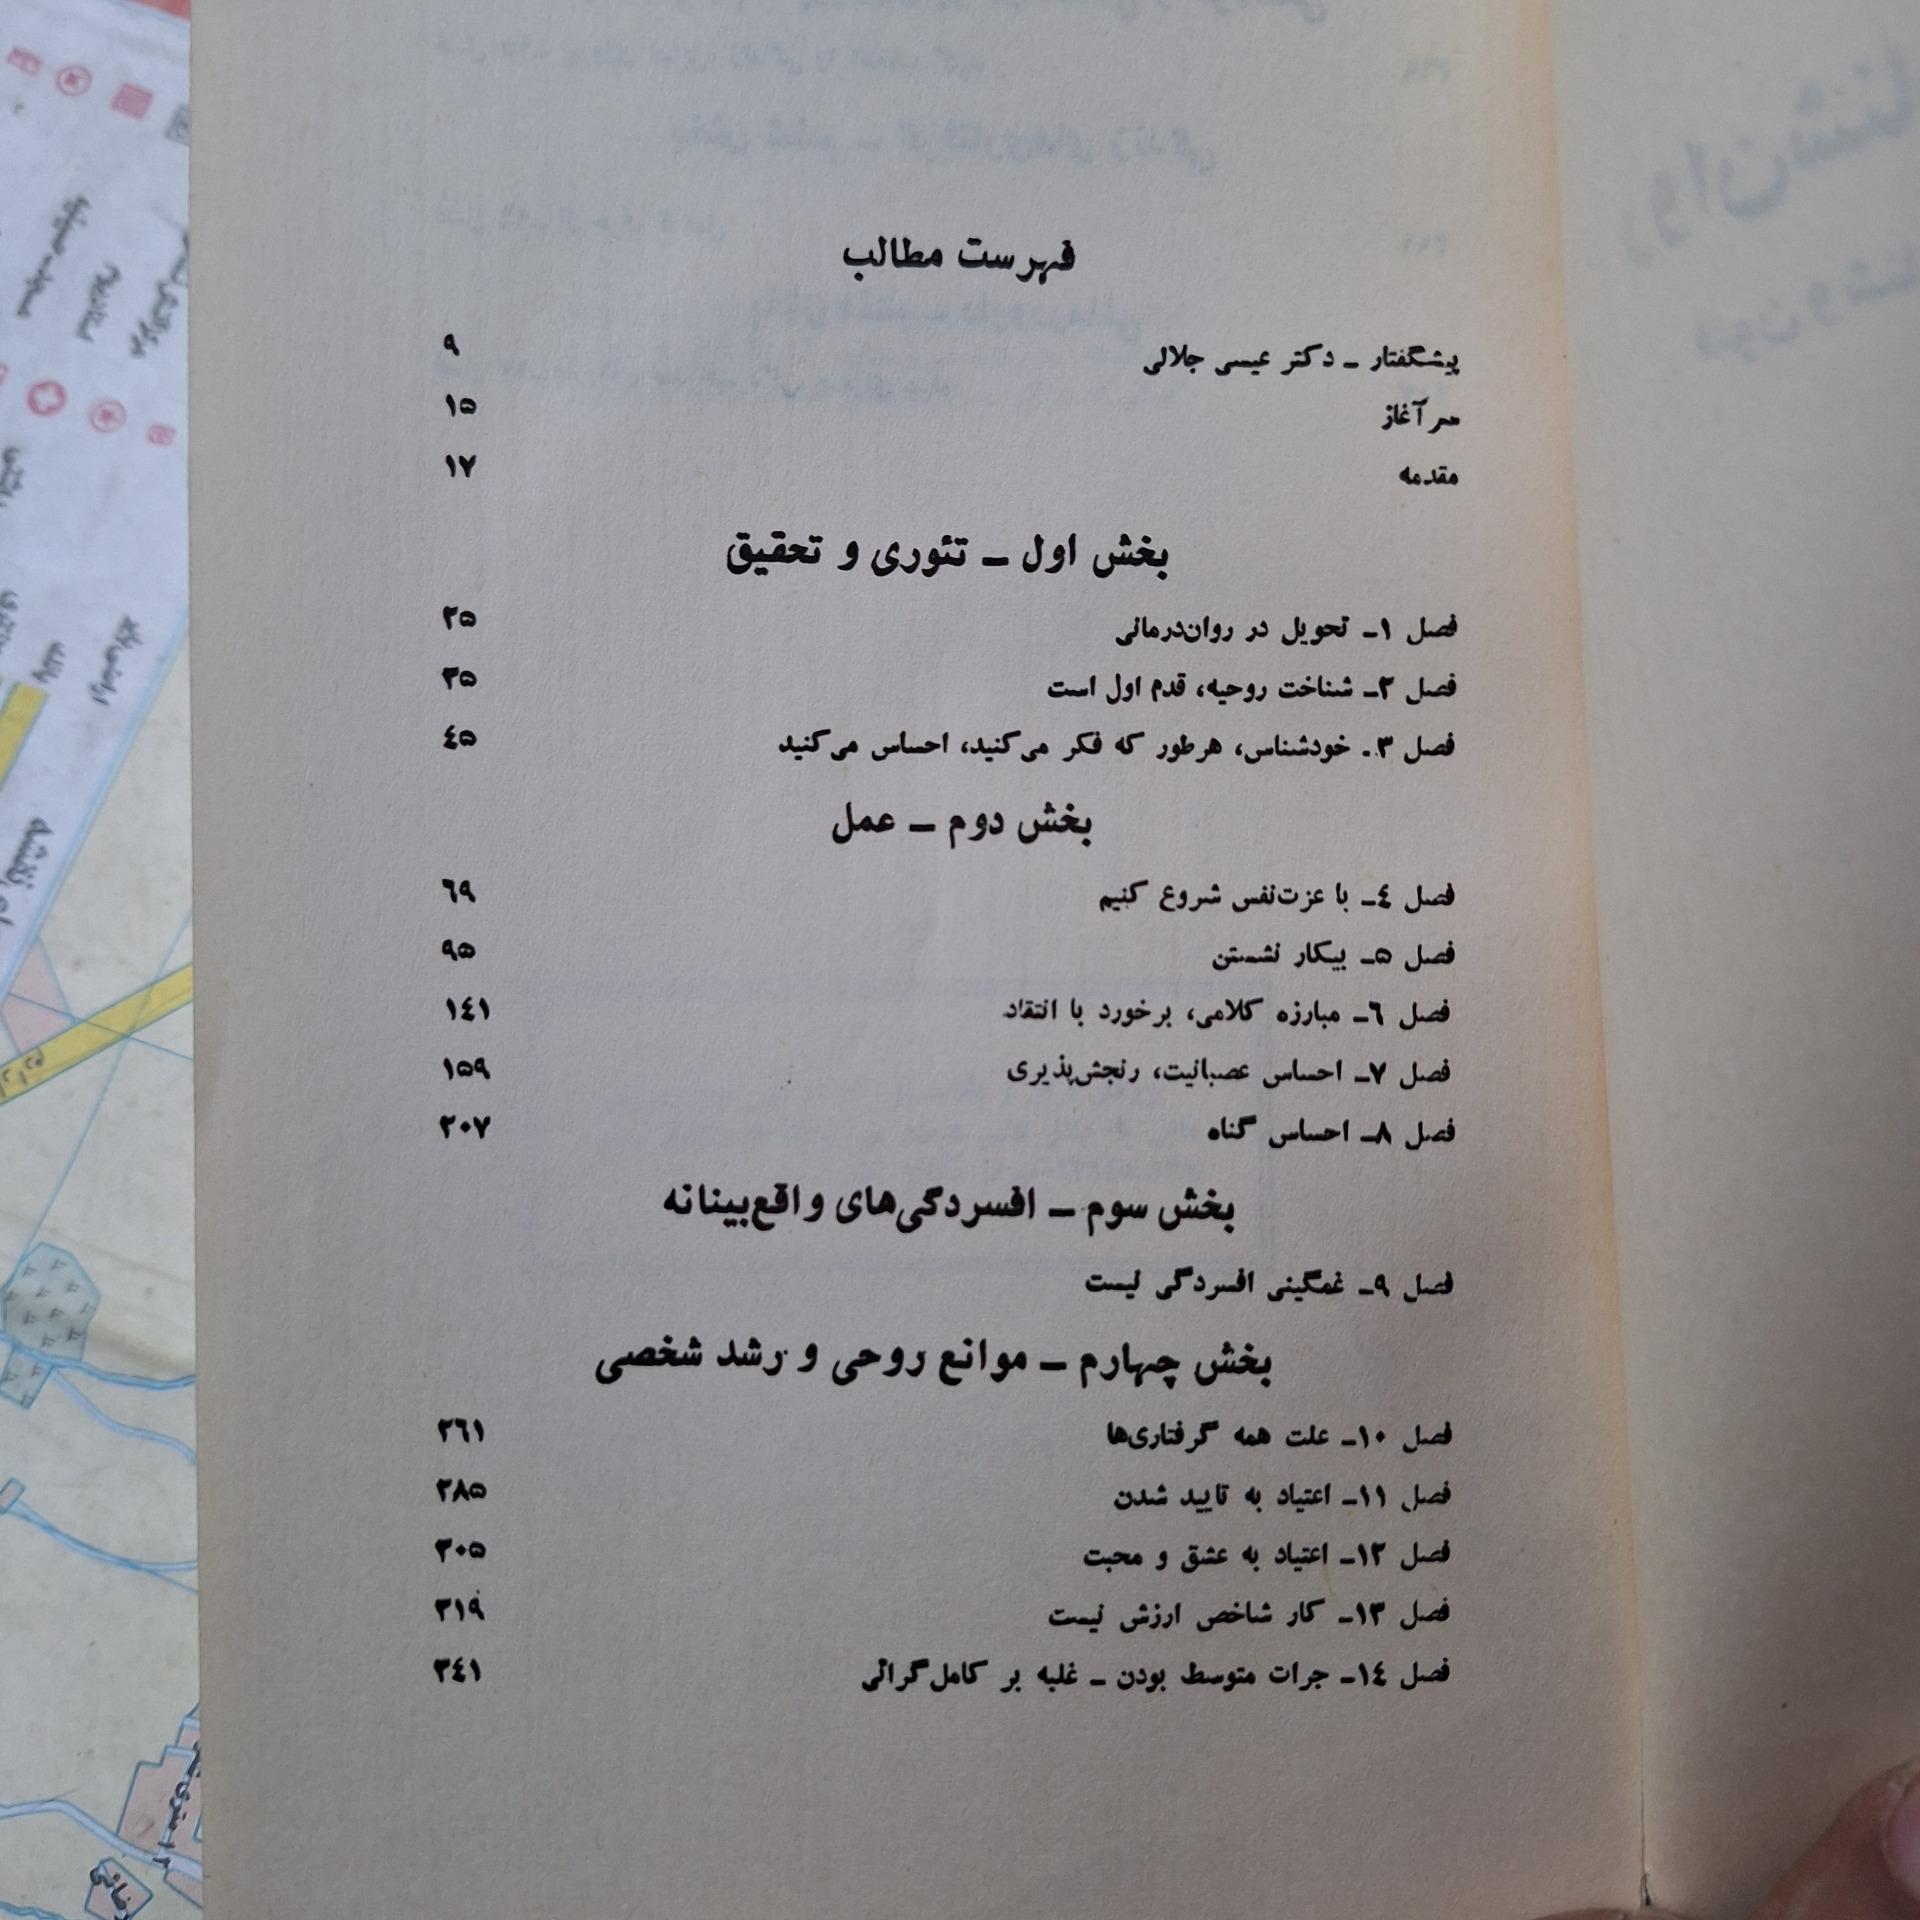 فهرست مطالب
پیشگفتار ـ دکتر عیسی جلالی ۹
سرآغاز ۱۵
مقدمه ۱۷
بخش اول ـ تئوری و تحقیق
فصل ۱ـ تحویل در روان‌درمانی ۲۵
فصل ۲ـ شناخت روحیه، قدم اول است ۳۵
فصل ۳ـ خودشناس، هرطور که فکر می‌کنید، احساس می‌کنید ٤۵
بخش دوم ـ عمل
فصل ٤ـ با عزت‌نفس شروع کنیم ٦۹
فصل ۵ـ بیکار نشستن ۹۵
فصل ٦ـ مبارزه کلامی، برخورد با انتقاد ۱٤۱
فصل ۷ـ احساس عصبانیت، رنجش‌پذیری ۱۵۹
فصل ۸ـ احساس گناه ۲۰۷
بخش سوم ـ افسردگی‌های واقع‌بینانه
فصل ۹ـ غمگینی افسردگی نیست
بخش چهارم ـ موانع روحی و رشد شخصی
فصل ۱۰ـ علت همه گرفتاری‌ها ۲٦۱
فصل ۱۱ـ اعتیاد به تایید شدن ۲۸۵
فصل ۱۲ـ اعتیاد به عشق و محبت ۳۰۵
فصل ۱۳ـ کار شاخص ارزش نیست ۳۱۹
فصل ۱٤ـ جرات متوسط بودن ـ غلبه بر کامل‌گرائی ۳٤۱